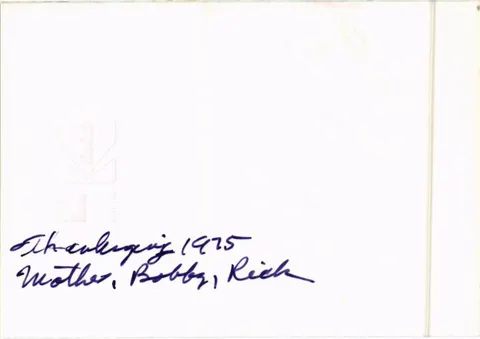 Thanksgiving 1975
Mother, Bobby, Rick